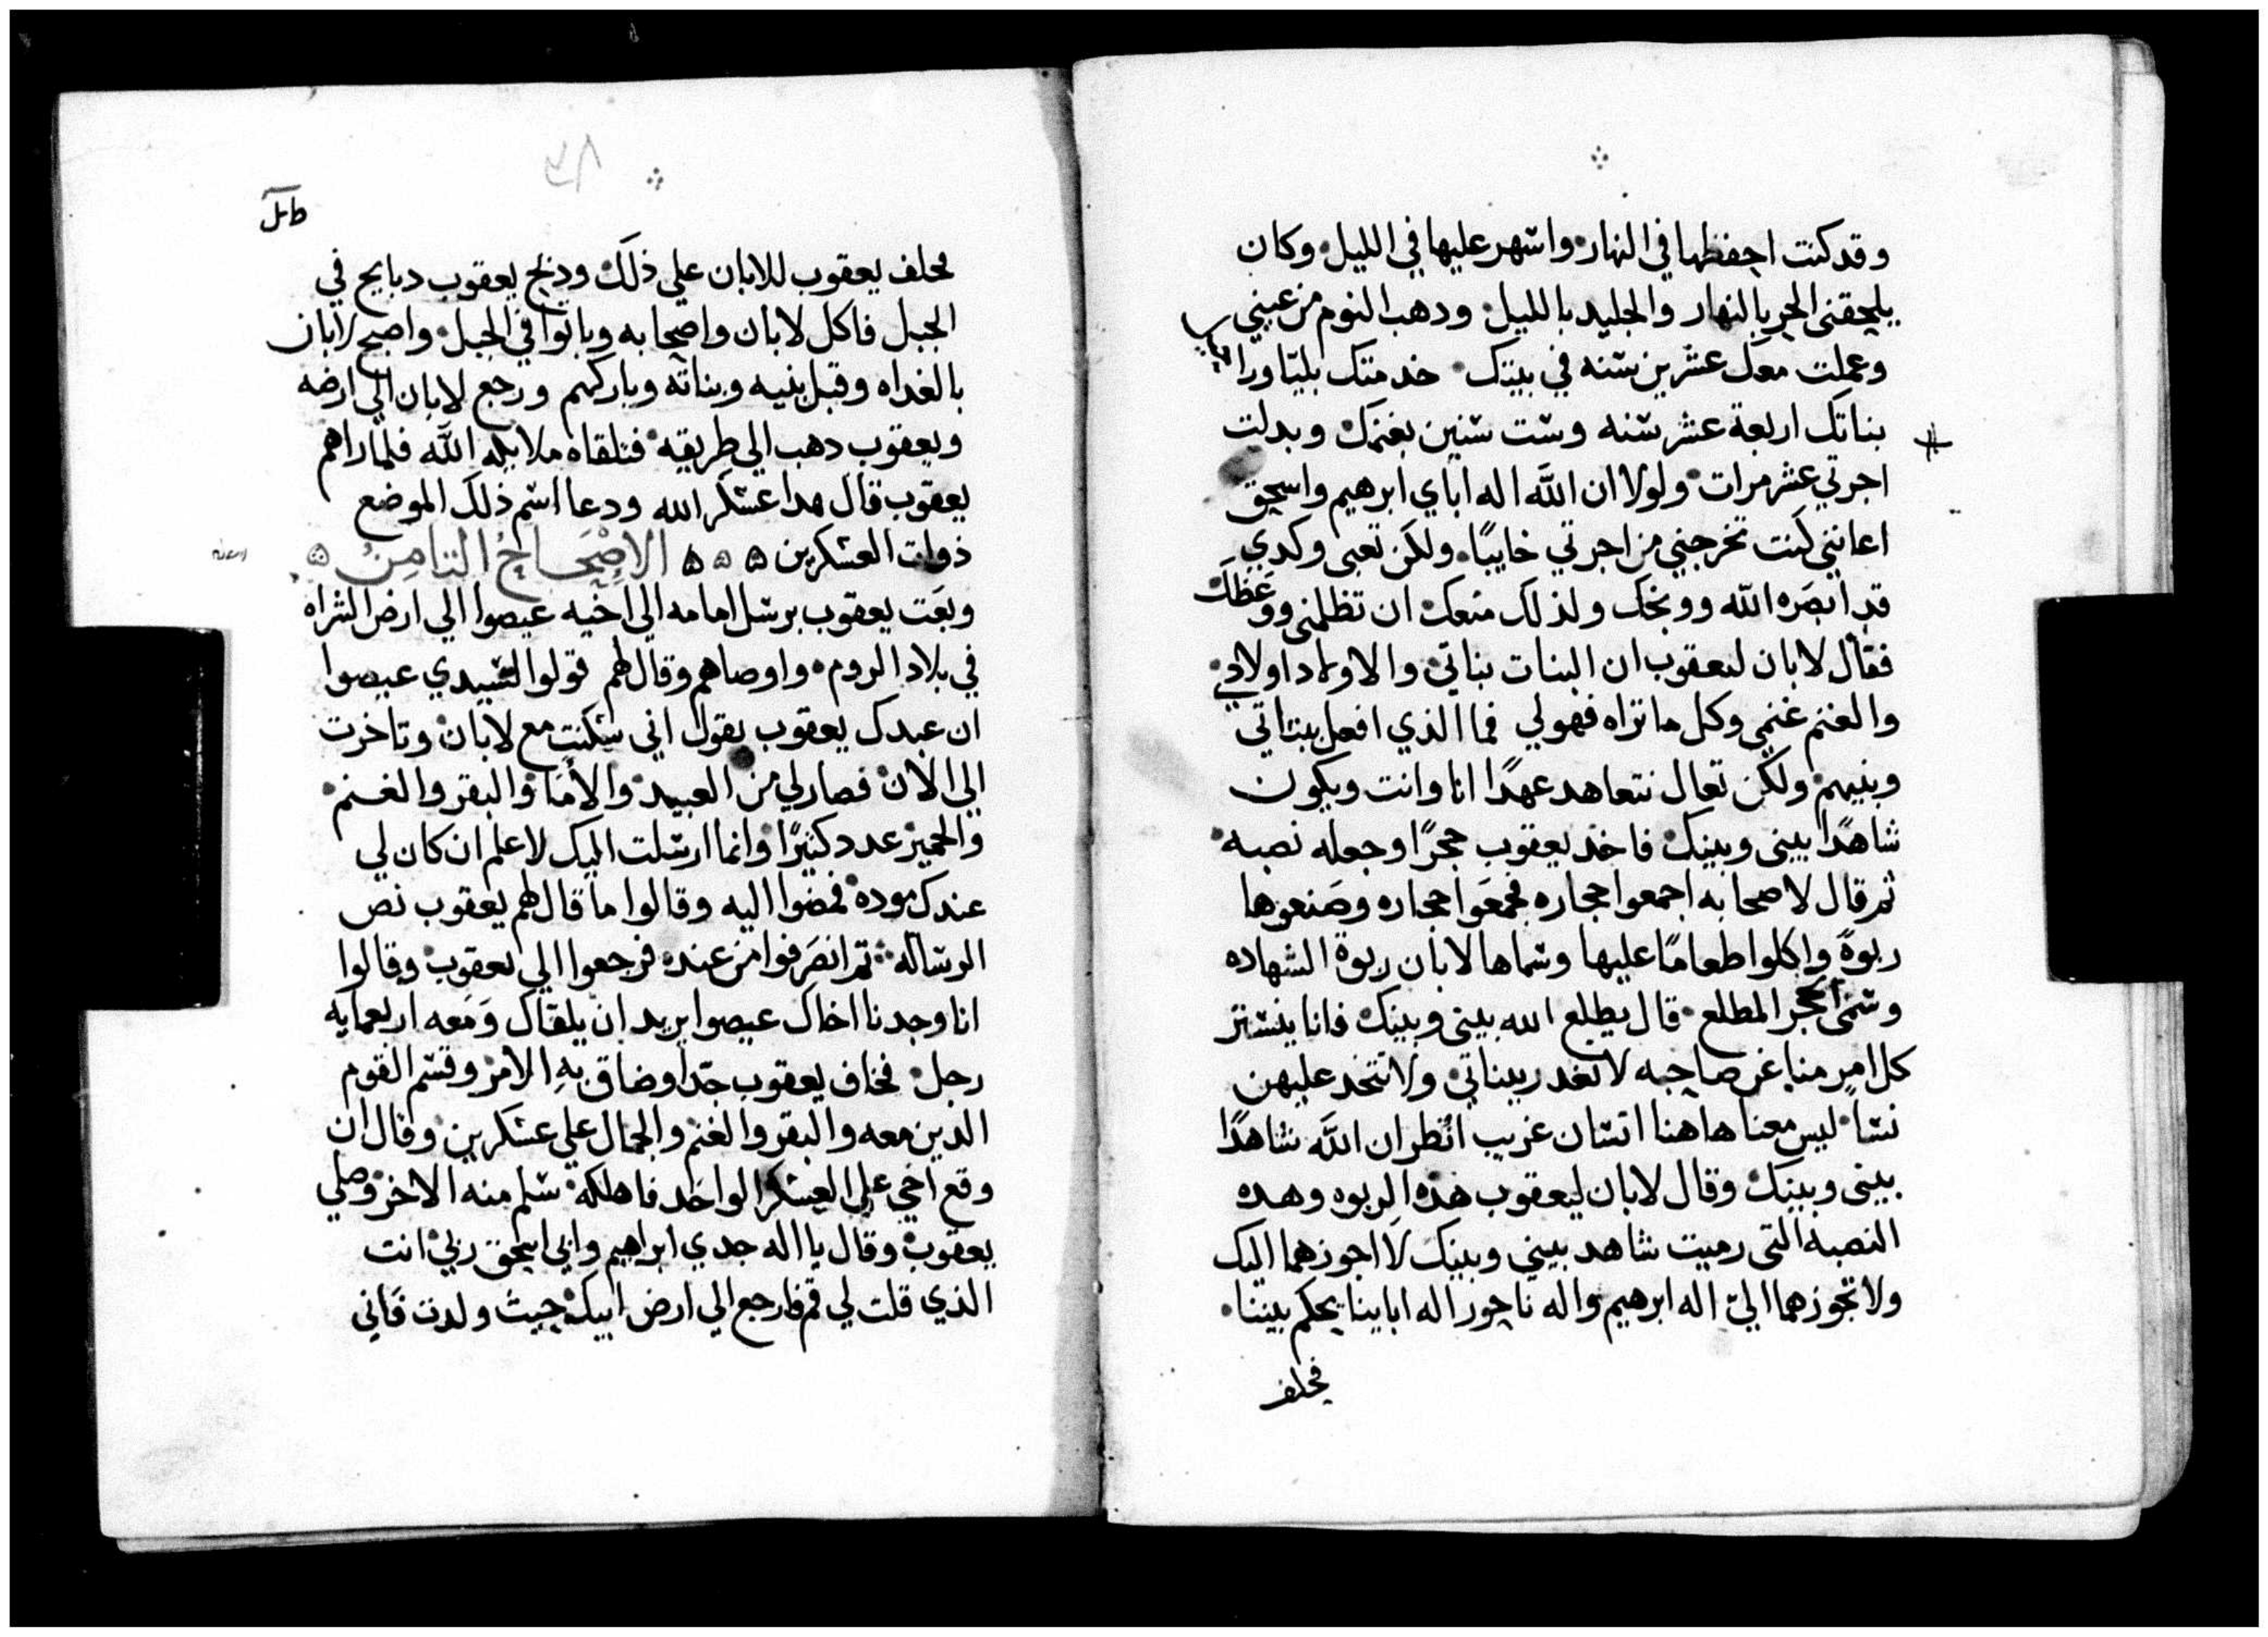 وقد كنت احفظها في النهار واسهر عليها في الليل وكان
يلحقني الحر بالنهار والجليد بالليل ودهب النوم من عيني
وعملت معك عشرين سنه في بيتك خدمتك بليا ورا
بناتك اربعة عشر سنه وست سنين بغنمك وبدلت
اجرتي عشر مرات ولولا ان الله اله اباي ابرهيم واسحق
اعانني كنت تخرجني من اجرتي خايبًا ولكن تعبي وكدي
قد ابصَره الله ووبخك ولذلك منعك ان تظلمني ووعَظكَ
فقال لابان ليعقوب ان البنات بناتي والاولاد اولادي
والغنم غنمي وكل ما تراه فهو لي فما الذي افعل ببناتي
وبنيهم ولكن تعال نتعاهد عهدًا انا وانت ويكون
شاهدًا بيني وبينك فاخذ يعقوب حجرًا وجعله نصبه
ثم قال لاصحابه اجمعوا حجاره فجمعَوا حجاره وصَنعوها
ربوةً واكلوا طعامًا عليها وسماها لابان ربوة الشهاده
وسمى الحجر المطلع قال يطلع الله بيني وبينك فانا ينستتر
كل امرٍ منا عن صاحبه لا تغدر ببناتي ولا تتخد عليهن
نسًا ليس معنا هاهنا انسان غريب انظر ان الله شاهدًا
بيني وبينك وقال لابان ليعقوب هذه الربوه وهده
النصبه التي رميت شاهد بيني وبينك لا اجوزهما اليك
ولا تجوزهما اليّ اله ابرهيم واله ناحور اله اباينا يحكم بيننا
فحلف
٣٨
فحلف يعقوب للابان علي ذلك ودبح يعقوب دبايح في
الجبل فاكل لابان واصحابه وباتوا في الجبل واصبح لابان
بالغداه وقبل بنيه وبناته وباركهم ورجع لابان الي ارضه
ويعقوب دهب الي طريقه فتلقاه ملايكه الله فلما راهم
يعقوب قال هدا عسكر الله ودعا اسم ذلك الموضع
ذوات العسكرين ه ه ه الاصْحَاحُ التامِنُ ه
وبعَت يعقوب برسل امامه الي اخيه عيصوا الي ارض الشراه
في بلاد الروم واوصاهم وقال لهم قولوا لسيدي عيصوا
ان عبدك يعقوب يقول اني سكنت مع لابان وتاخرت
الي الان فصار لي من العبيد والاما والبقر والغنم
والحمير عدد كثيرًا وانما ارسلت اليك لاعلم ان كان لي
عندك موده فمضوا اليه وقالوا ما قال لهم يعقوب نص
الرساله تم انصَرفوا من عنده فرجعوا الي يعقوب وقالوا
انا وجدنا اخاك عيصوا يريد ان يلقاك وَمعه اربعمايه
رجل فخاف يعقوب جدًا وضاق بهِ الامر وقسم القوم
الدين معه والبقر والغنم والجمال علي عسكرين وقال ان
وقع اخي علي العسكر الواحد فاهلكه سلم منه الاخر وصلي
يعقوب وقال يا اله جدي ابراهيم وابي اسحق ربي انت
الذي قلت لي قم فارجع الي ارض ابيك حيث ولدت فاني